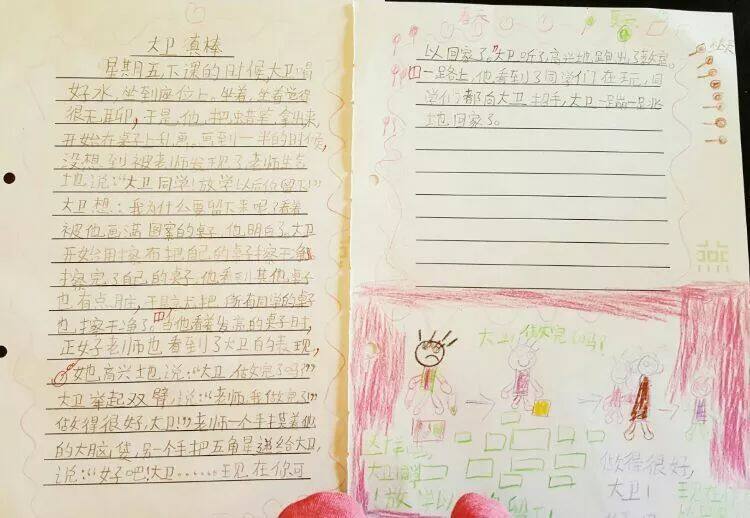 大卫真棒
星期五,下课的时候,大卫喝
好水,坐到座位上。坐着,坐着觉得
很无聊,于是,他把蜡笔拿出来,
开始在桌子上乱画。画到一半的时候,
没想到被老师发现了,老师生气
地说:“大卫同学!放学以后你留下!”
大卫想:我为什么要留下来呢?看着
被他画满图案的桌子,他明白了。大卫
开始用擦布把自己的桌子擦干净。
擦完了自己的桌子,他看到其他桌子
也有点脏,于是大把所有同学的桌子
也擦干净了。当他看着发亮的桌子时,
正好老师也看到了大卫的表现,
她高兴地说:“大卫,做完了吗?”
大卫举起双臂说:“老师,我做完了!”
“做得很好,大卫!”老师一个手摸着他
的大脑袋,另一个手把五角星递给大卫,
说:“好吧!大卫……现在你可
以回家了。”大卫听了高兴地跑出了教室。
一路上,他看到了同学们在玩,同
学们都向大卫招手,大卫一蹦一跳
地回家了。
大卫,做完了吗?
这样
大卫同学
放学以
做得很好,
大卫!
现在
以回